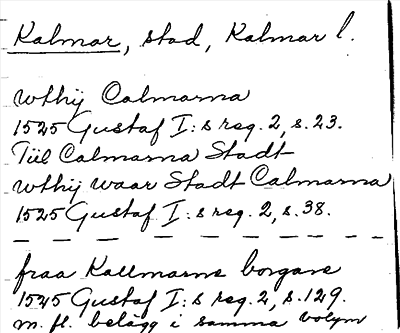 Kalmar, stad, Kalmar l.
wthij Calmarna
1525 Gustaf I:s reg. 2, s. 23.
Tiil Calmarna Stadt
wthij waar Stadt Calmarna
1525 Gustaf I:s reg. 2, s. 38.
— — — — — — — — —
fraa Kallmarne borgare
1525 Gustaf I:s reg. 2, s. 129.
m. fl. belägg i samma volym